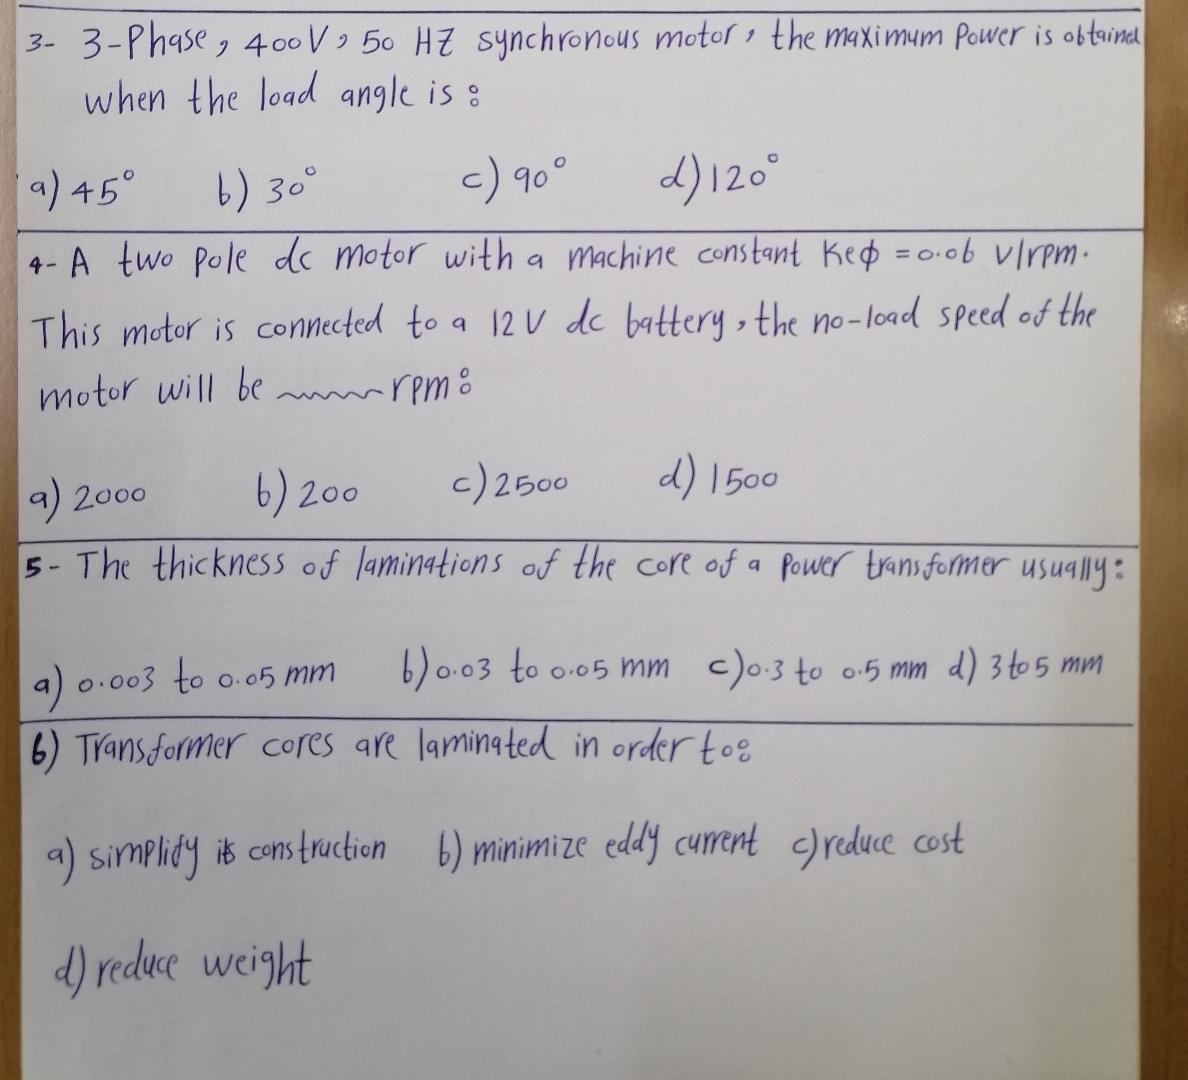 3- 3-Phase, 400V, 50 HZ synchronous motor, the maximum Power is obtained
when the load angle is :
a) 45° b) 30° c) 90° d) 120°
4- A two pole dc motor with a machine constant Keφ = 0.06 V/rpm.
This motor is connected to a 12 V dc battery, the no-load speed of the
motor will be ~~~~ rpm:
a) 2000 b) 200 c) 2500 d) 1500
5- The thickness of laminations of the core of a Power transformer usually:
a) 0.003 to 0.05 mm b) 0.03 to 0.05 mm c) 0.3 to 0.5 mm d) 3 to 5 mm
6) Transformer cores are laminated in order to:
a) simplify its construction b) minimize eddy current c) reduce cost
d) reduce weight